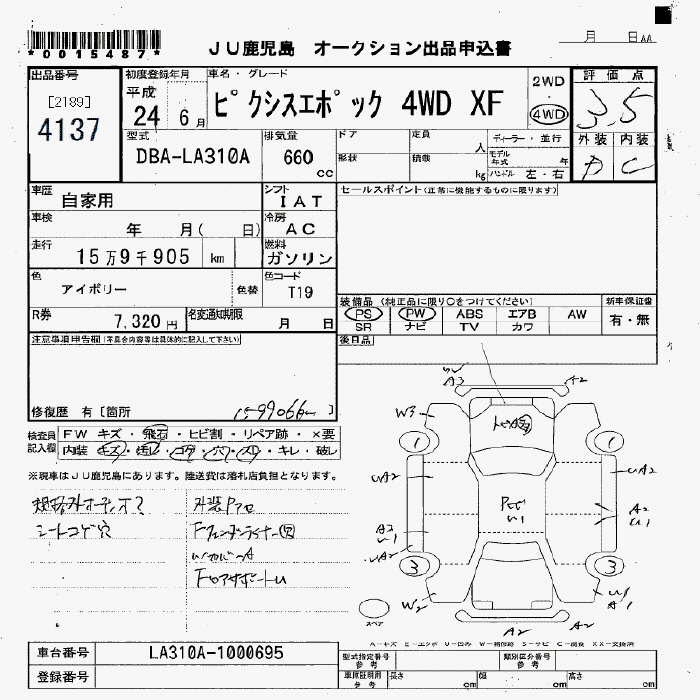 *0015487*
JU鹿児島 オークション出品申込書
月 日AA
出品番号
[2189]
4137
初度登録年月
平成
24 6月
車名・グレード
ピクシスエポック 4WD XF
2WD
・
4WD
評価点
3,5
外装 内装
C
型式
DBA-LA310A
排気量
660
cc
ドア
形状
定員
人
積載
kg
ディーラー・並行
モデル年式 年
ハンドル 左・右
車歴
自家用
シフト
IAT
セールスポイント(正常に機能するものに限ります)
車検
年 月( 日)
冷房
AC
走行
15万9千905 km
燃料
ガソリン
色
アイボリー
色替
色コード
T19
R券
7,320 円
名変通知期限
月 日
装備品 (純正品に限り○をつけてください)
PS PW ABS エアB AW
SR ナビ TV カワ
新車保証書
有・無
後日品
注意事項申告欄(不具合内容等は具体的に記入して下さい)
修復歴 有〔箇所 1599066km 〕
検査員記入欄
FW キズ・飛石・ヒビ割・リペア跡・×要
内装 キズ・汚レ・コゲ・穴・スレ・キレ・破レ
※現車はJU鹿児島にあります。陸送費は落札店負担となります。
規格外オーディオ?
シートコゲ穴
外装
A3
A2
W3
1
1
UA2
UA2
A2
U1
A3
U1
UA2
3
3
W2
A1
A2
A2
スペア
A−キズ E−エクボ U−凹み W−補修跡 S−サビ C−腐食 XX−交換済
車台番号
LA310A-1000695
登録番号
型式指定番号
参考
類別区分番号
参考
車庫証明用
参考
長さ cm
幅 cm
高さ cm